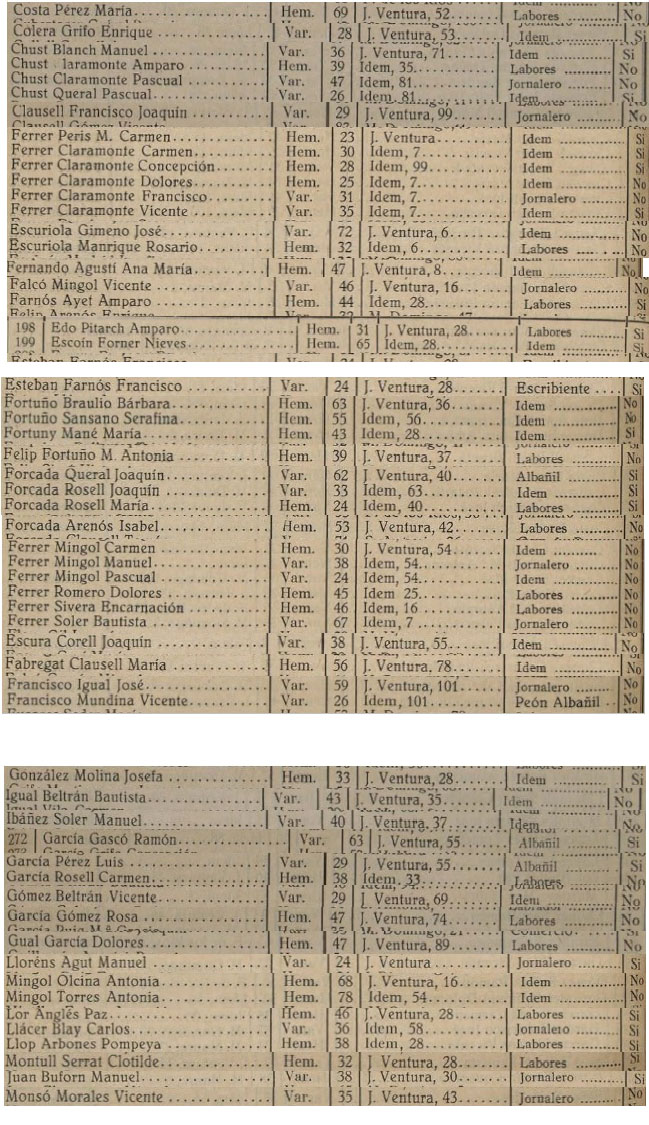 Costa Pérez María Hem. 69 J. Ventura, 52 Labores No
Colera Grifo Enrique Var. 28 J. Ventura, 53 Idem Si
Chust Blanch Manuel Var. 36 J. Ventura, 71 Idem Si
Chust laramonte Amparo Hem. 39 Idem, 35 Labores No
Chust Claramonte Pascual Var. 47 Idem, 81 Jornalero No
Chust Queral Pascual Var. 26 Idem, 81 Idem Si
Clausell Francisco Joaquín Var. 29 J. Ventura, 99 Jornalero No
Ferrer Peris M. Carmen Hem. 23 J. Ventura Idem Si
Ferrer Claramonte Carmen Hem. 30 Idem, 7 Idem Si
Ferrer Claramonte Concepción Hem. 28 Idem, 99 Idem Si
Ferrer Claramonte Dolores Hem. 25 Idem, 7 Idem No
Ferrer Claramonte Francisco Var. 31 Idem, 7 Jornalero No
Ferrer Claramonte Vicente Var. 35 Idem, 7 Idem Si
Escuriola Gimeno José Var. 72 J. Ventura, 6 Idem No
Escuriola Manrique Rosario Hem. 32 Idem, 6 Labores No
Fernando Agustí Ana María Hem. 47 J. Ventura, 8 Idem No
Falcó Mingol Vicente Var. 46 J. Ventura, 16 Jornalero No
Farnós Ayet Amparo Hem. 44 Idem, 28 Labores Si
198 Edo Pitarch Amparo Hem. 31 J. Ventura, 28 Labores Si
199 Escoín Forner Nieves Hem. 65 Idem, 28 Idem Si
Esteban Farnós Francisco Var. 24 J. Ventura, 28 Escribiente Si
Fortuño Braulio Bárbara Hem. 63 J. Ventura, 36 Idem No
Fortuño Sansano Serafina Hem. 55 Idem, 56 Idem No
Fortuny Mané María Hem. 43 Idem, 28 Idem Si
Felip Fortuño M. Antonia Hem. 39 J. Ventura, 37 Labores No
Forcada Queral Joaquín Var. 62 J Ventura, 40 Albañil Si
Forcada Rosell Joaquín Var. 33 Idem, 63 Idem Si
Forcada Rosell María Hem. 24 Idem, 40 Labores Si
Forcada Arenós Isabel Hem. 53 J. Ventura, 42 Labores No
Ferrer Mingol Carmen Hem. 30 J. Ventura, 54 Idem No
Ferrer Mingol Manuel Var. 38 Idem, 54 Jornalero No
Ferrer Mingol Pascual Var. 24 Idem, 54 Idem No
Ferrer Romero Dolores Hem. 45 Idem 25 Labores No
Ferrer Sivera Encarnación Hem. 46 Idem, 16 Labores No
Ferrer Soler Bautista Var. 67 Idem, 7 Jornalero No
Escura Corell Joaquín Var. 38 J Ventura, 55 Idem No
Fabregat Clausell María Hem. 56 J Ventura. 78 Idem No
Francisco Igual José Var. 59 J. Ventura, 101 Jornalero No
Francisco Mundina Vicente Var. 26 Idem, 101 Peón Albañil No
González Molina Josefa Hem. 33 J. Ventura, 28 Idem Si
Igual Beltrán Bautista Var. 43 J. Ventura, 35 Idem No
Ibáñez Soler Manuel Var. 40 J. Ventura, 37 Idem No
272 García Gascó Ramón Var. 63 J. Ventura, 55 Albañil Si
García Pérez Luis Var. 29 J. Ventura, 55 Albañil Si
García Rosell Carmen Hem. 38 Idem, 33 Labores No
Gómez Beltrán Vicente Var. 29 J Ventura, 69 Idem No
García Gómez Rosa Hem. 47 J. Ventura, 74 Labores No
Gual García Dolores Hem. 47 J. Ventura, 89 Labores No
Lloréns Agut Manuel Var. 24 J. Ventura Jornalero Si
Mingol Olcina Antonia Hem. 68 J. Ventura, 16 Idem No
Mingol Torres Antonia Hem. 78 Idem, 54 Idem No
Lor Anglés Paz Hem. 46 J. Ventura, 28 Labores Si
Llácer Blay Carlos Var. 36 Idem, 58 Jornalero Si
Llop Arbones Pompeya Hem. 38 Idem, 28 Labores Si
Montull Serrat Clotilde Hem. 32 J Ventura, 28 Labores Si
Juan Buforn Manuel Var. 38 J. Ventura, 30 Jornalero Si
Monsó Morales Vicente Var. 35 J. Ventura, 43 Jornalero No